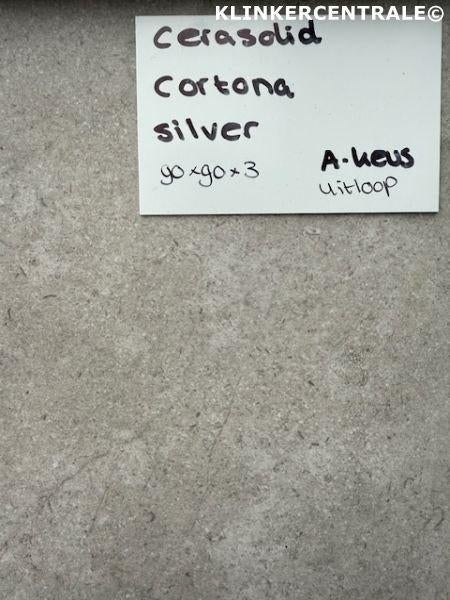 KLINKERCENTRALE©
cerasolid
cortona
silver
90×90×3
A.keus
uitloop